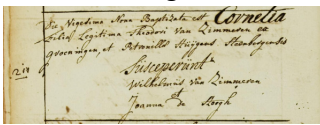 Die Vigesima Nona Baptizata est Cornelia
filia Legitima Theodori Van Zimmeren ex
groeningen, et Petronella Huijgens Steenbergensis
Susceperünt
Wilhelmus Van Zimmeren
Joanna de Hoogh